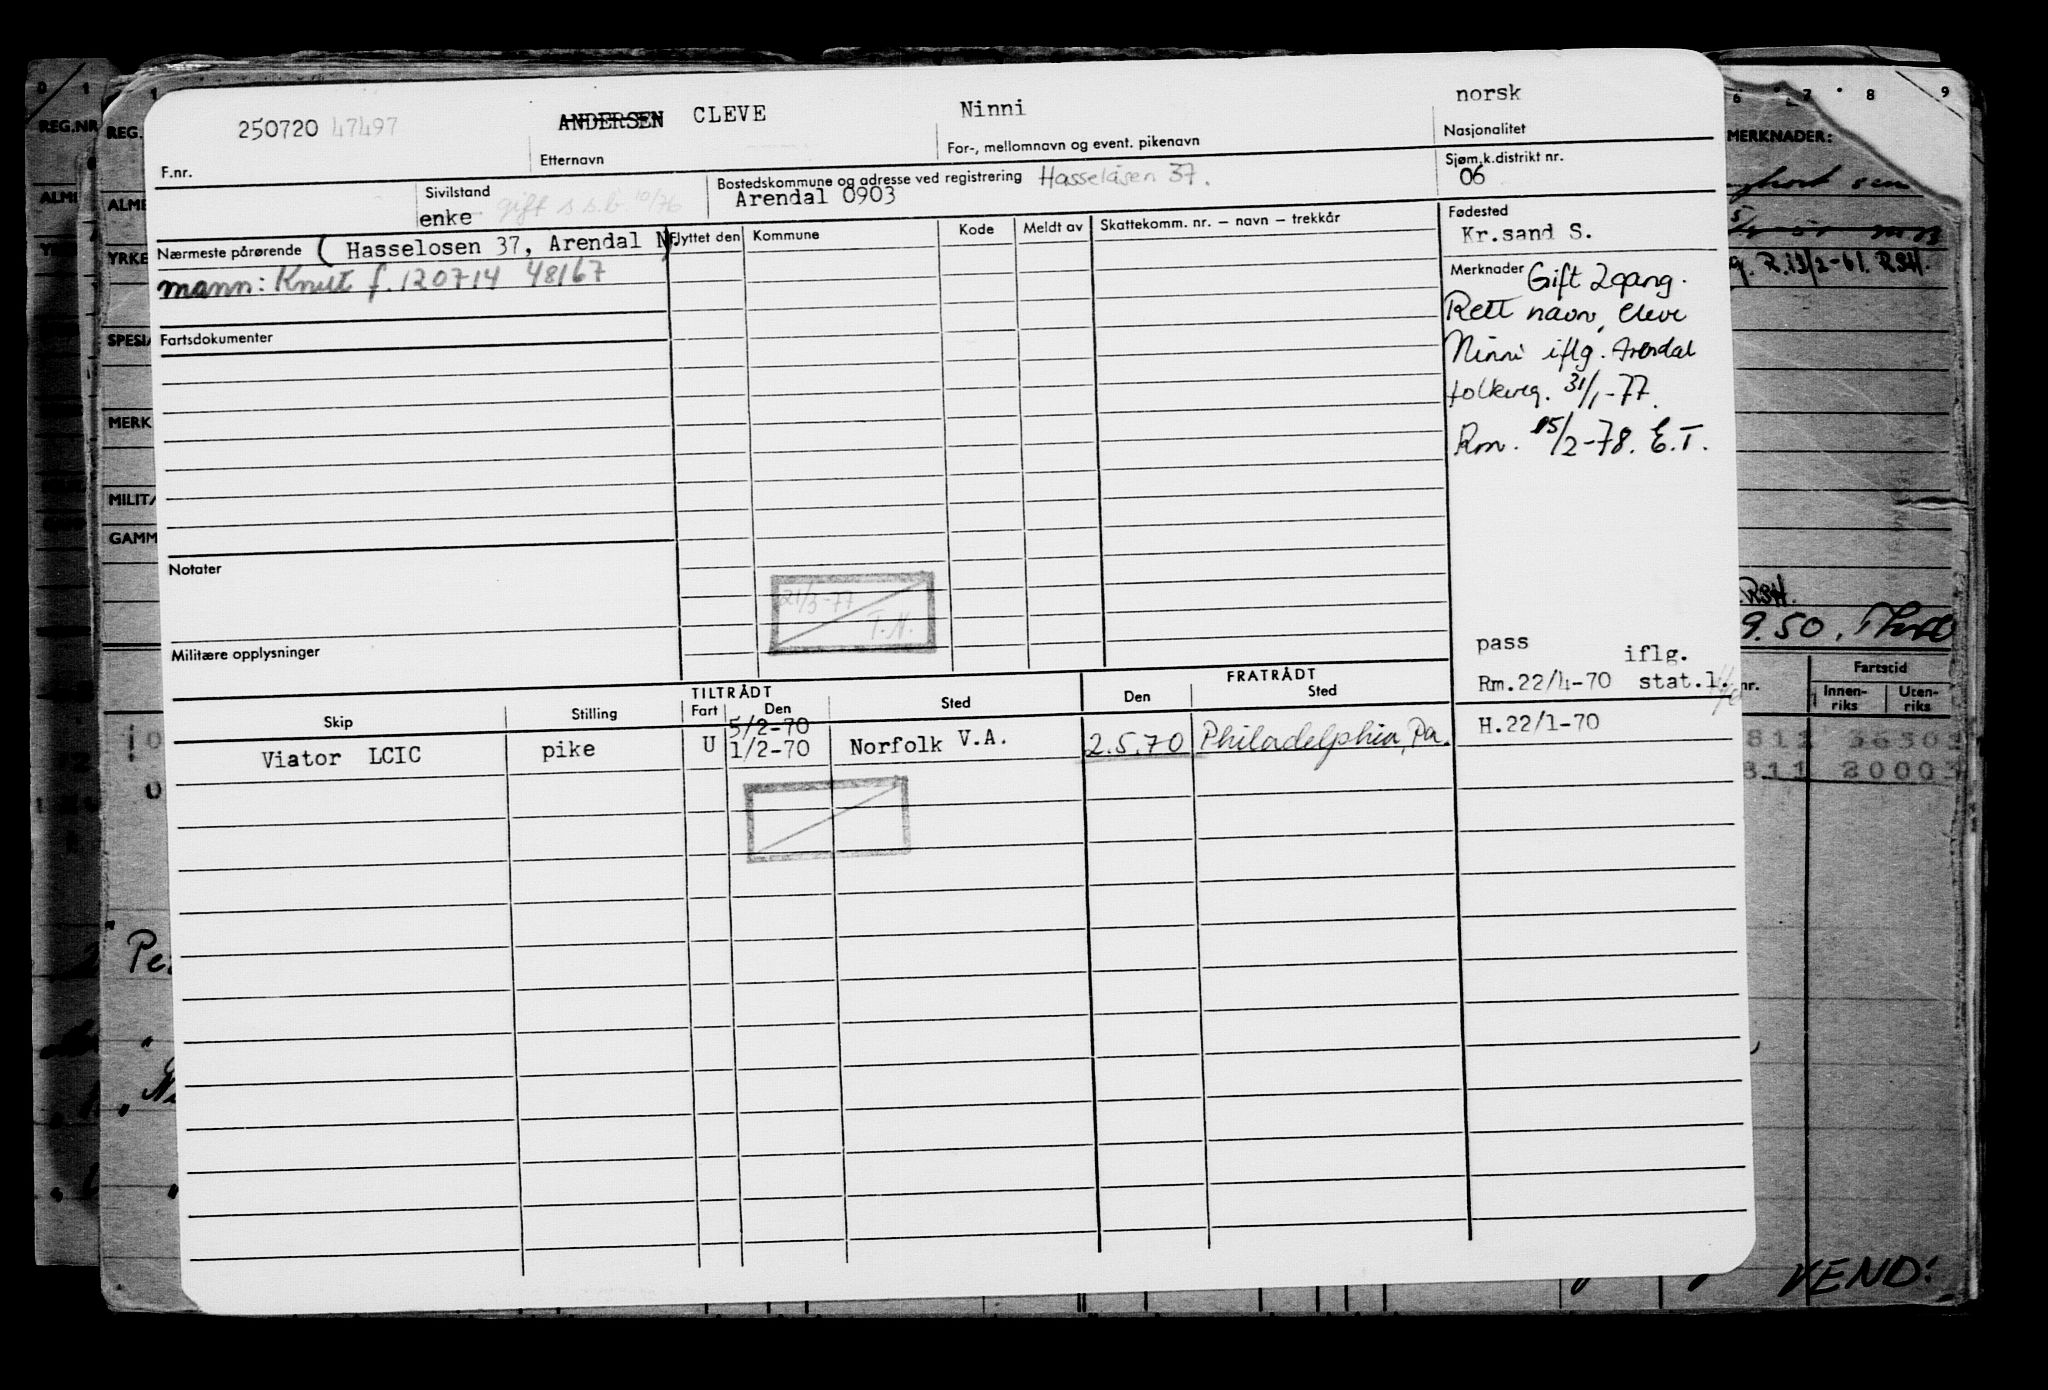 250720 47497 ANDERSEN CLEVE Ninni norsk
F.nr. Etternavn For-, mellomnavn og event. pikenavn Nasjonalitet
Sivilstand Bostedskommune og adresse ved registrering Hasselåsen 37. Sjøm.k.distrikt nr.
enke gift s.s.b. 10/76 Arendal 0903 06
Nærmeste pårørende ( Hasselosen 37, Arendal N) Flyttet den Kommune Kode Meldt av Skattekomm. nr. – navn – trekkår Fødested
Kr.sand S.
mann: Knut f. 120714 48167
Merknader Gift 2gang.
Rett navn, Cleve
Ninni iflg. Arendal
folkereg. 31/1-77.
Rm. 15/2-78. E.T.
Fartsdokumenter
Notater
21/3-77
T.N.
Militære opplysninger
pass iflg.
Rm.22/4-70 stat.l.
TILTRÅDT FRATRÅDT
Skip Stilling Fart Den Sted Den Sted
5/2-70
Viator LCIC pike U 1/2-70 Norfolk V.A. 2.5.70 Philadelphia, Pa. H.22/1-70
0 1
REG.NR
ALM
YRK
1
REG.
ALME
YRKE
SPESI
MERK
MILITÆ
GAMM
6 7 8 9
MERKNADER:
R.13/2-61. RSH.
RSH.
9.50.
nr. Fartstid
Innen-riks Uten-riks
811 20003
VEND!